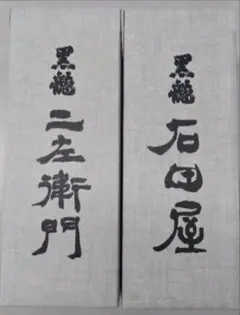 黒龍
石田屋
黒龍
二左衛門